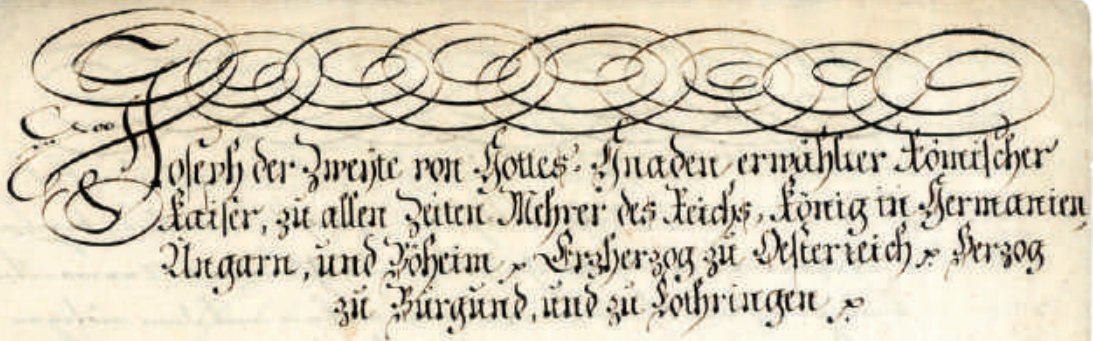 Joseph der Zweyte von Gottes Gnaden erwählter Römischer
Kaiser, zu allen Zeiten Mehrer des Reichs, König in Germanien,
Ungarn, und Böheim, Erzherzog zu Oesterreich, Herzog
zu Burgund, und zu Lothringen